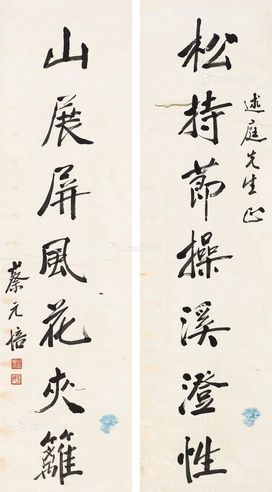 松持節操溪澄性
述庭先生正
山展屏風花夾籬
蔡元培